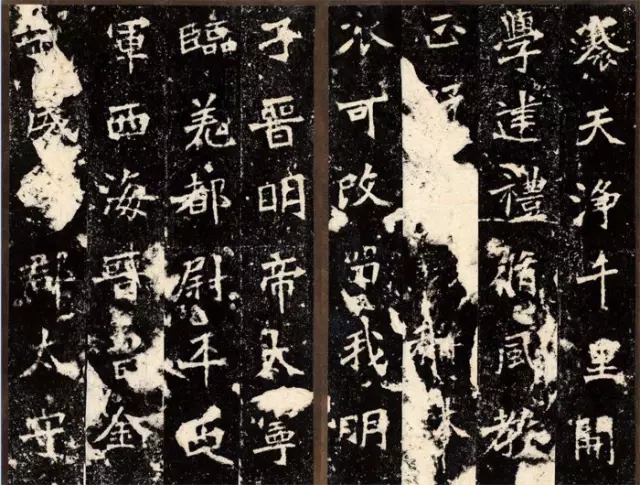 褰天淨千里開
學建禮脩風教
正耕林
可改留我明
子晉明帝太寧
臨羌都尉平西
軍西海晉昌金
威郡太守